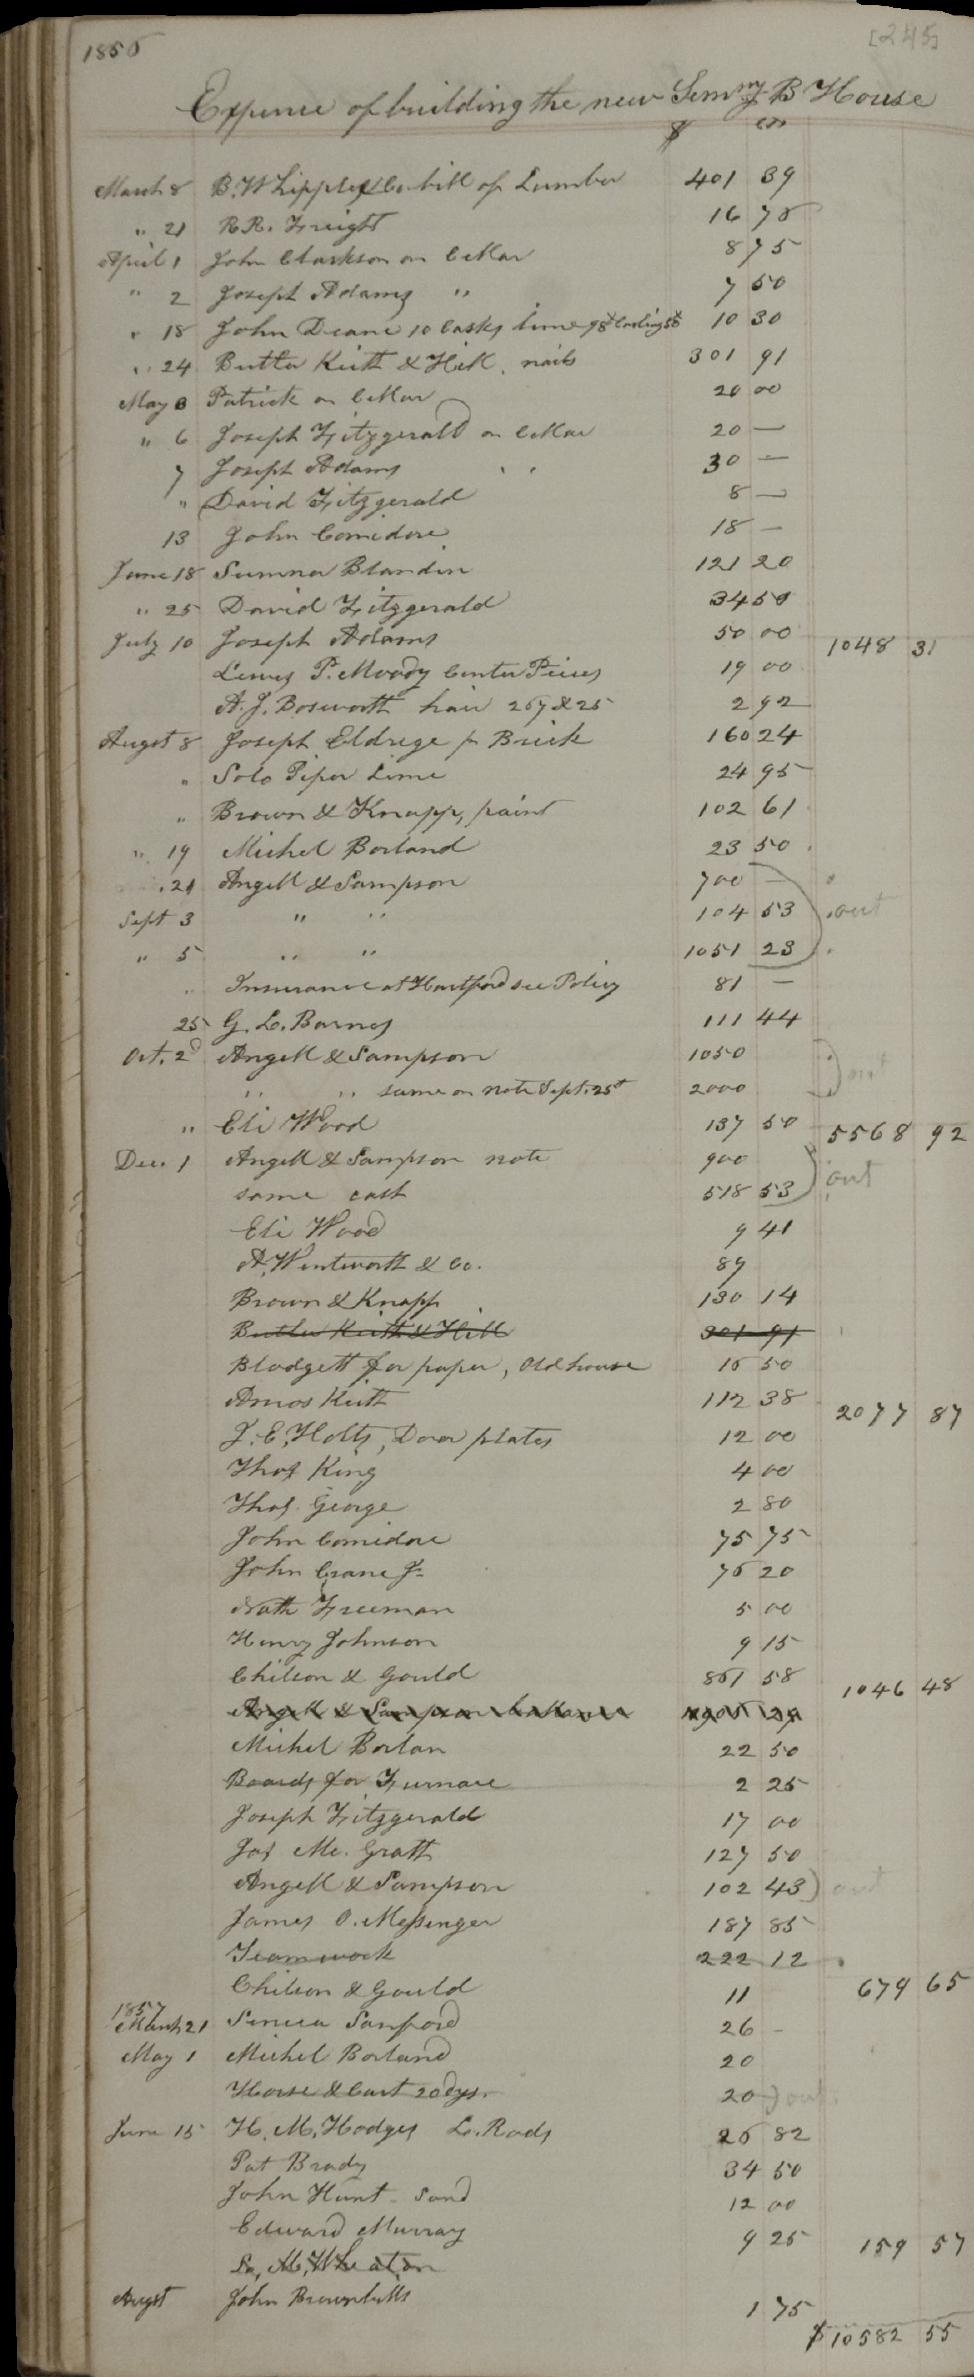 1856 [245]
Expense of building the new Semy B House
$ cts
March 8 B. W Lippley & Co bill of Lumber 401 39
" 21 R R. Freight 16 76
April 1 John Clarkson on Cellar 8 75
" 2 Joseph Adams " 7 50
" 18 John Deane 10 casks lime 98 carting 50 10 30
" 24 Butler Keith & Hill, nails 301 91
May 3 Patrick on Cellar 20 00
" 6 Joseph Fitzgerald on Cellar 20 —
7 Joseph Adams " 30 —
" David Fitzgerald 8 —
13 John Comidore 18 —
June 18 Sumner Blandin 121 20
" 25 David Fitzgerald 34 50
July 10 Joseph Adams 50 00 1048 31
Lewis P. Moody Center Pieces 19 00
A. J. Bosworth hair 267 & 25 2 92
Augst 8 Joseph Eldrege for Brick 160 24
" Solo Piper Lime 24 95
" Brown & Knapp, paint 102 61
" 19 Michel Borland 23 50
" 21 Angell & Sampson 700 —
Sept 3 " " 104 53 out
" 5 " " 1051 23
" Insurance at Hartford see Policy 81 —
25 G. L. Barnes 111 44
Oct. 2d Angell & Sampson 1050
" " same on note Sept. 25t 2000 out
" Eli Wood 137 50 5568 92
Dec. 1 Angell & Sampson note 900
same cash 518 53 out
Eli Wood 9 41
A. Wentworth & Co. 89
Brown & Knapp 130 14
Butler Keith & Hill 301 91
Blodgett for paper, Old house 16 50
Amos Keith 112 38 2077 87
J. E. Holts, Door plates 12 00
Thos King 4 00
Thos. George 2 80
John Comidore 75 75
John Crane Jr 76 20
Nath Freeman 5 00
Henry Johnson 9 15
Chilson & Gould 861 58 1046 48
Angell & Sampson ballance
Michel Borlan 22 50
Boards for Furnace 2 25
Joseph Fitzgerald 17 00
Jas Mc. Gratt 127 50
Angell & Sampson 102 43 out
James O. Messenger 187 85
Teamwork 222 12
Chilson & Gould 11 679 65
1857
March 21 Seneca Sanford 26 —
May 1 Michel Borland 20
Horse & Cart 20 dys. 20 — out
June 15 H. M. Hodges L. Rods 26 82
Pat Brady 34 50
John Hunt Sand 12 00
Edward Murray 9 25 159 57
L. M. Wheaton
Augst John Brown bills 1 75
$10582 55